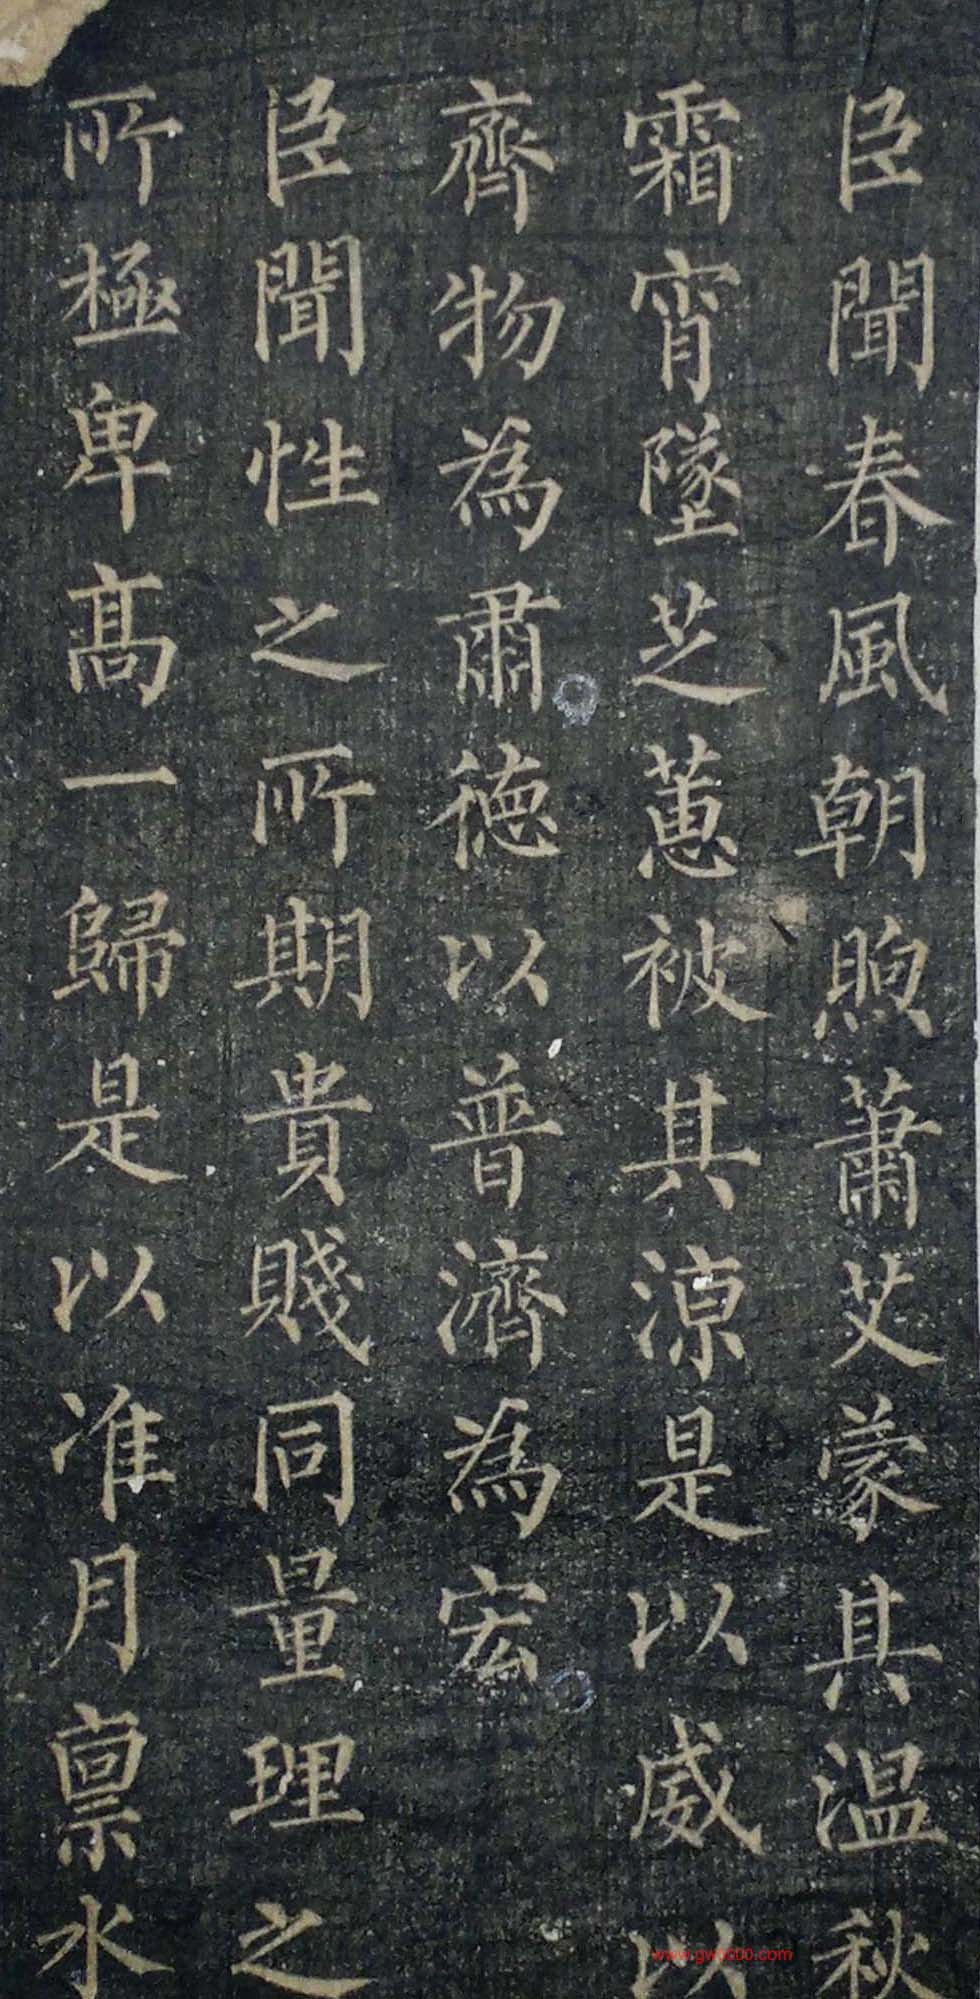 臣聞春風朝煦蕭艾蒙其溫秋
霜宵墜芝蕙被其涼是以威以
齊物為肅德以普濟為宏
臣聞性之所期貴賤同量理之
所極卑高一歸是以准月稟水
www.gw1000.com